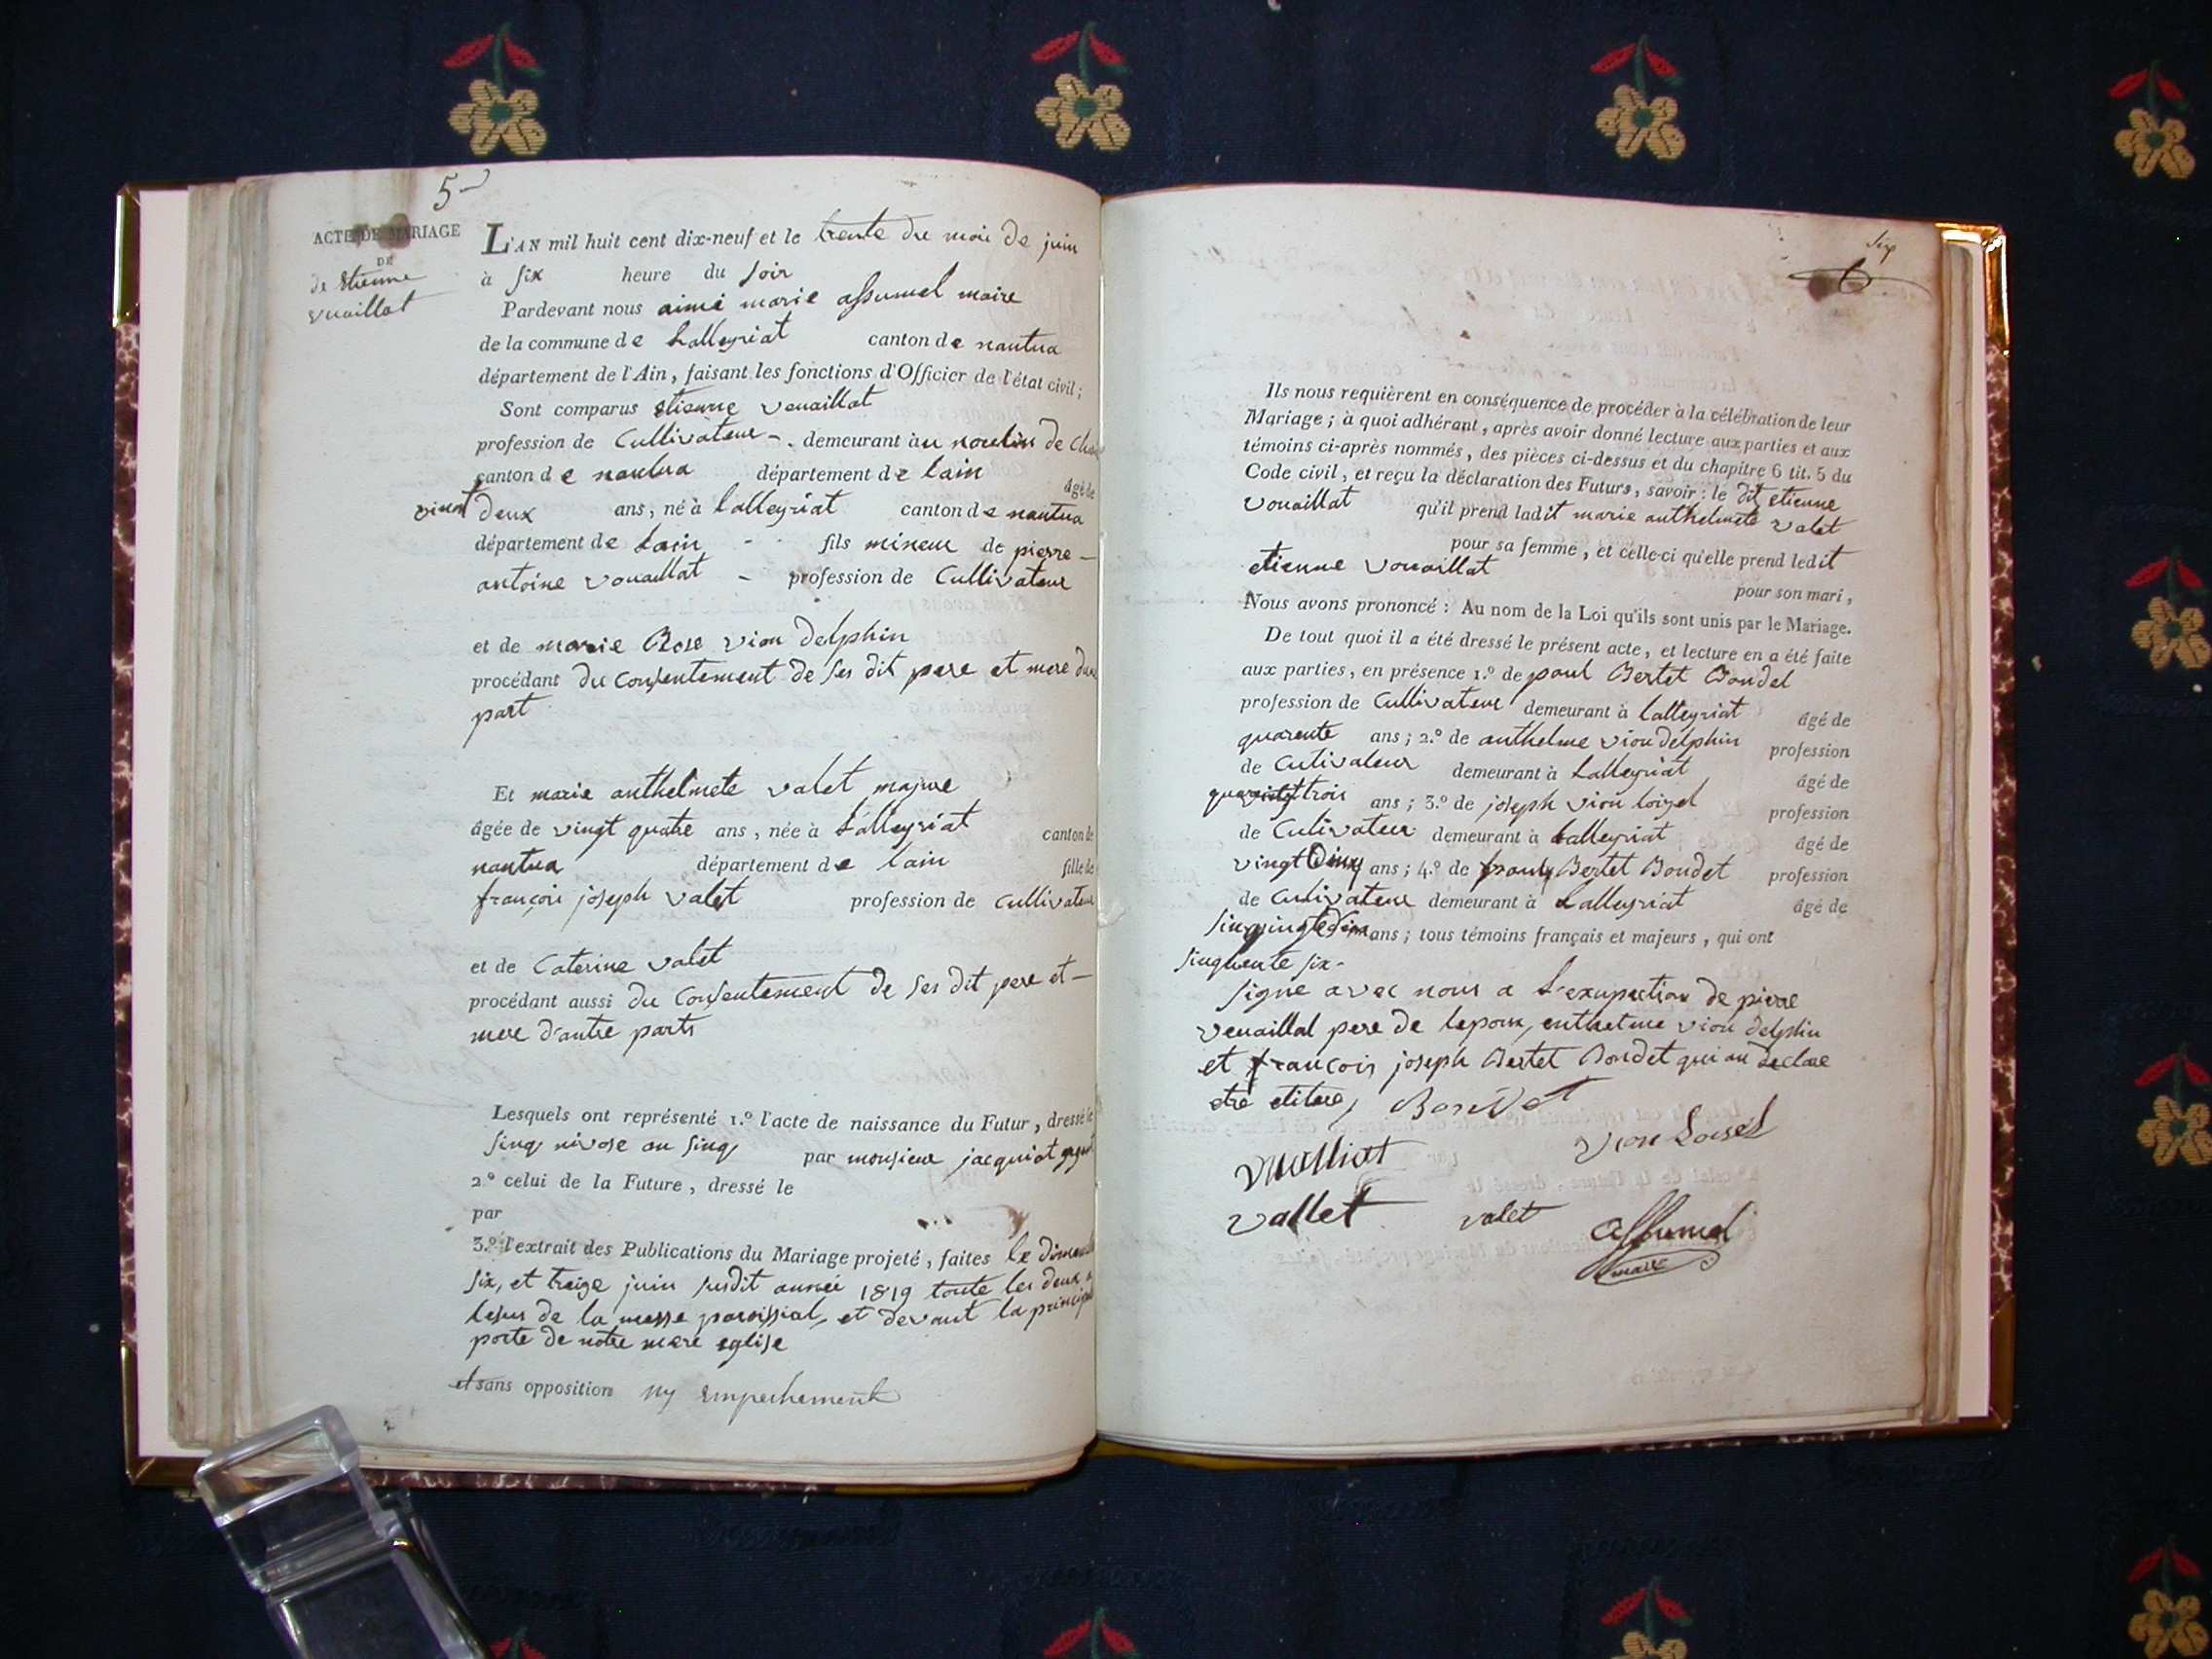 5
ACTE DE MARIAGE
DE
de Etienne
vuaillat
L'AN mil huit cent dix-neuf et le trente du mois de juin
à six heure du soir
Pardevant nous aimé marie assumel maire
de la commune de Lalleyriat canton de nantua
département de l'Ain, faisant les fonctions d'Officier de l'état civil;
Sont comparus etienne vouaillat
profession de Cullivateur demeurant au moulin de
canton de nantua département de lain âgé de
vint deux ans, né à lalleyriat canton de nantua
département de Lain fils mineur de pierre
antoine vouaillat profession de Cullivateur
et de marie Rose vion delphin
procédant du consentement de ses dit pere et mere
part
Et marie anthelmete valet majure
âgée de vingt quatre ans, née à Lalleyriat canton de
nantua département de lain fille de
françois joseph valet profession de cullivateur
et de Caterine valet
procédant aussi du consentement de ses dit pere et
mere d'autre parts
Lesquels ont représenté 1.º l'acte de naissance du Futur, dressé le
sinq nivose an sinq par monsieur jacquiot
2.º celui de la Future, dressé le
par
3.º l'extrait des Publications du Mariage projeté, faites le
six, et treize juin susdit année 1819 toute les deux
de la messe paroissial, et devant la
porte de notre mere eglise
et sans opposition ny empechement
six
6
Ils nous requièrent en conséquence de procéder à la célébration de leur
Mariage; à quoi adhérant, après avoir donné lecture aux parties et aux
témoins ci-après nommés, des pièces ci-dessus et du chapitre 6 tit. 5 du
Code civil, et reçu la déclaration des Futurs, savoir: le dit etienne
vouaillat qu'il prend ladit marie anthelmete valet
pour sa femme, et celle-ci qu'elle prend ledit
etienne vouaillat pour son mari,
Nous avons prononcé: Au nom de la Loi qu'ils sont unis par le Mariage.
De tout quoi il a été dressé le présent acte, et lecture en a été faite
aux parties, en présence 1.º de paul Bertet Bondet
profession de Cullivateur demeurant à lalleyriat âgé de
quarente ans; 2.º de anthelme vion delphin profession
de Cutivateur demeurant à Lalleyriat âgé de
trois ans; 3.º de joseph vion loizel profession
de Cutivateur demeurant à Lalleyriat âgé de
vingt ans; 4.º de Bertet Bondet profession
de Cutivateur demeurant à Lalleyriat âgé de
ans; tous témoins français et majeurs, qui ont
sinquente six
signe avec nous a de pierre
vouaillat pere de lepoux, enthelme vion delphin
et francois joseph Bertet Bondet qui on declare
etre
Bondet
Vuailliat
vion Loisel
vallet
valet
assumel
maire